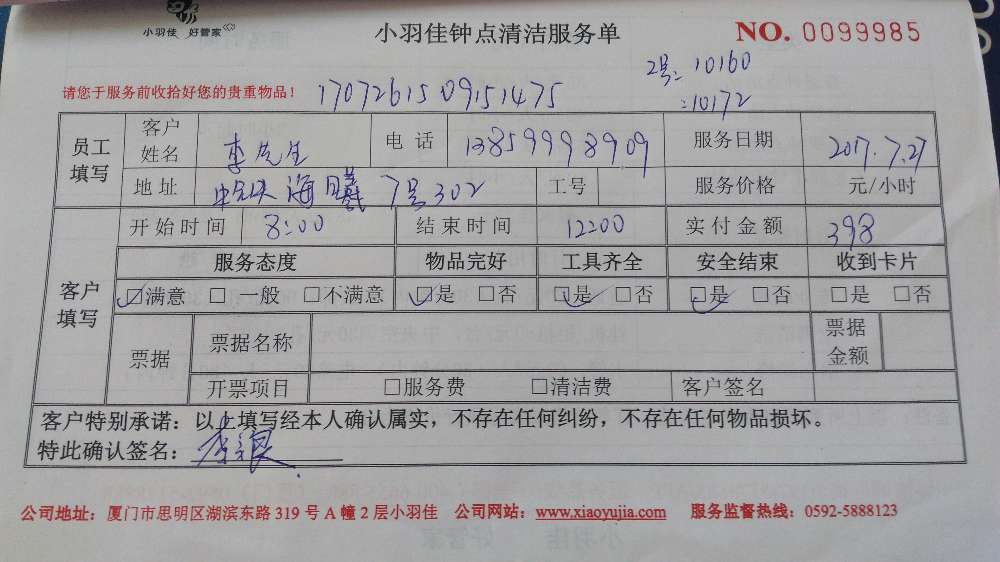 小羽佳 好管家
小羽佳钟点清洁服务单
NO. 0099985
2号: 10160
: 10172
请您于服务前收拾好您的贵重物品！
1707261509151475
员工填写 客户姓名 李先生 电话 13859998909 服务日期 2017.7.27
地址 中铁海曦 7号302 工号 服务价格 元/小时
客户填写 开始时间 8:00 结束时间 12:00 实付金额 398
服务态度 物品完好 工具齐全 安全结束 收到卡片
☑满意 □一般 □不满意 ☑是 □否 ☑是 □否 ☑是 □否 □是 □否
票据 票据名称 票据金额
开票项目 □服务费 □清洁费 客户签名
客户特别承诺：以上填写经本人确认属实，不存在任何纠纷，不存在任何物品损坏。
特此确认签名：李
公司地址：厦门市思明区湖滨东路 319 号 A 幢 2 层小羽佳 公司网站：www.xiaoyujia.com 服务监督热线：0592-5888123